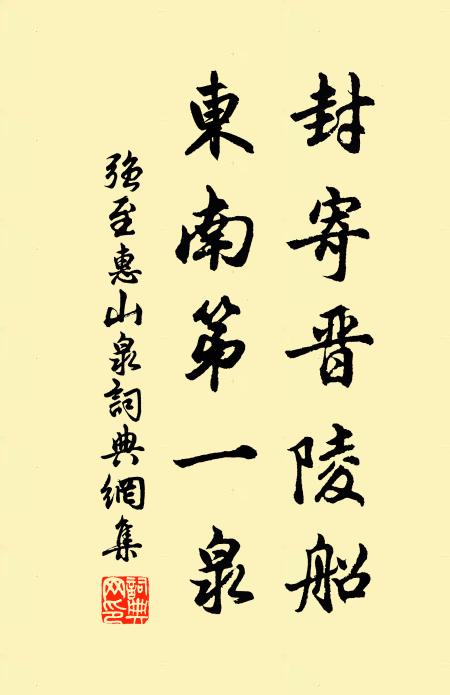 封寄晋陵船
東南第一泉
强至惠山泉詞典網集
詞典網印